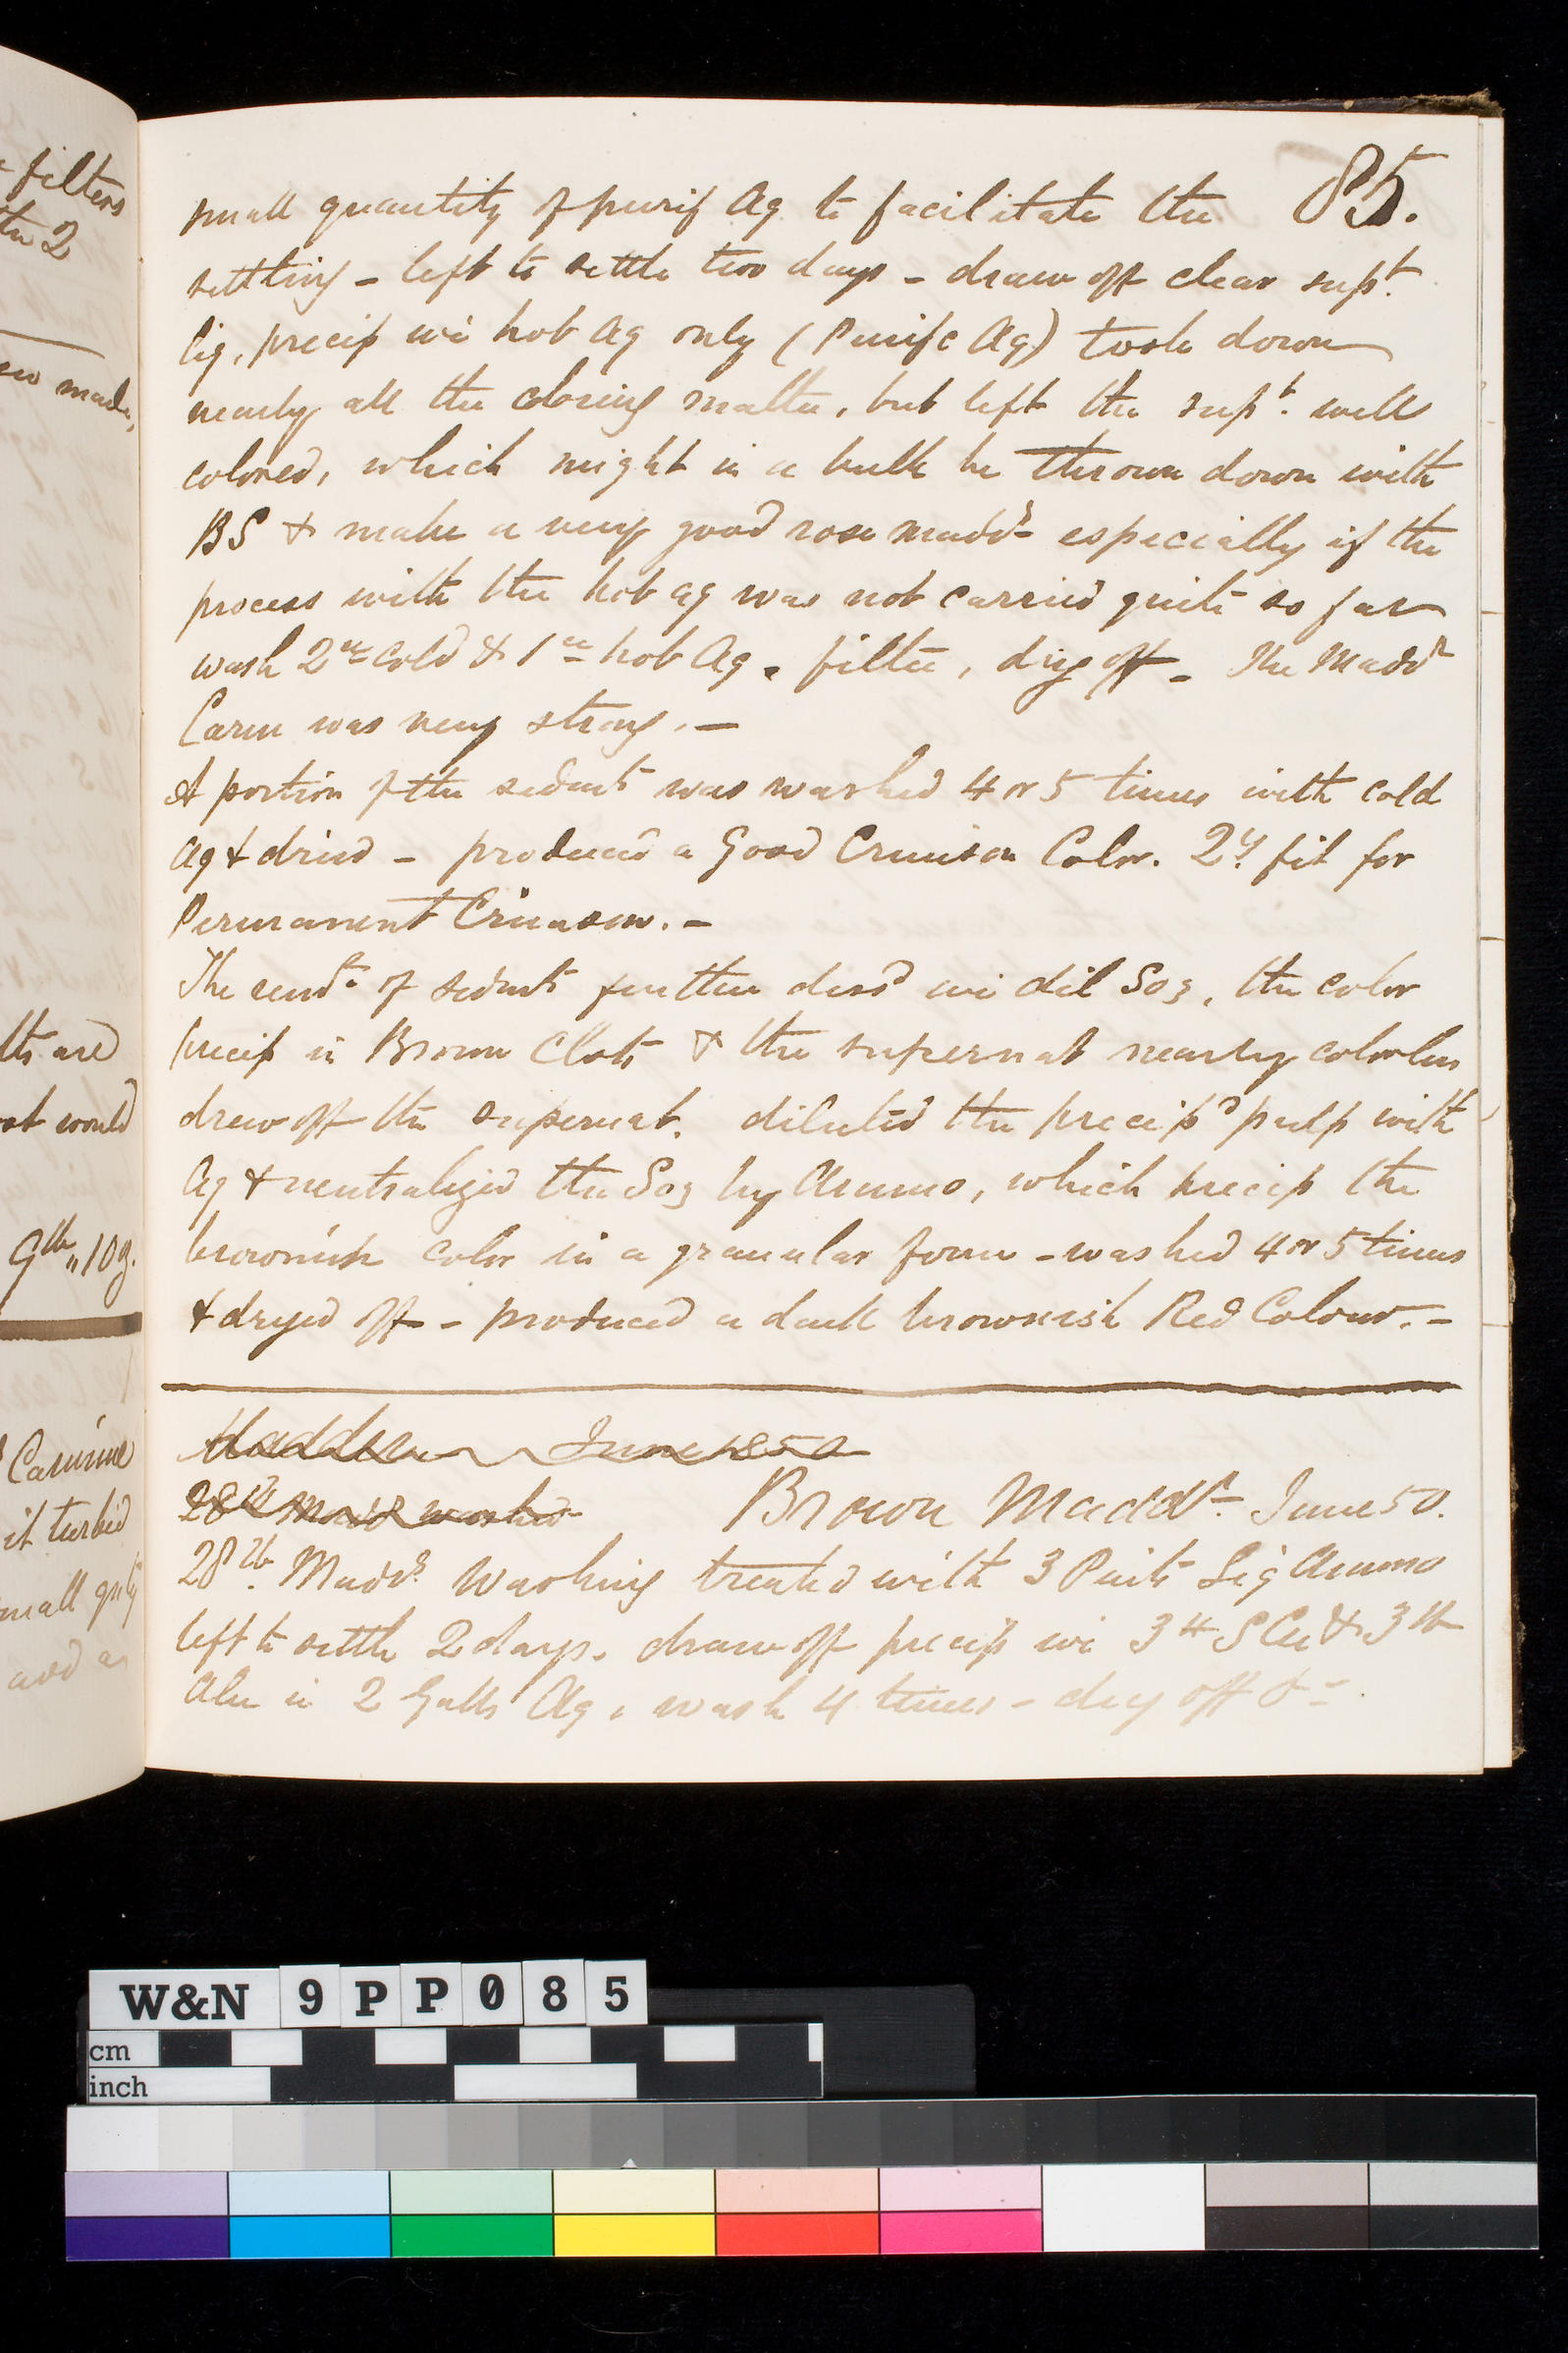 filters
the 2
made,
lts are
ot would
9lb „ 10z.
Carmine
it turbid
small qnty
and as
85.
small quantity of purif Aq to facilitate the
settling – left to settle two days – draw off clear supt.
liq, precip wi hot Aq only (Purifc Aq) took down
nearly all the coloring matter, but left the supt. well
colored, which might in a bulk be thrown down with
BS & make a very good rose maddr especially if the
process with the hot aq was not carried quite so far
wash 2ce cold & 1ce hot Aq. filter, dry off – The Maddr
Carm was very strong. –
A portion of the sedmt was washed 4 or 5 times with cold
Aq & dried – produced a Good Crimson Color. 2y. fit for
Permanent Crimson. –
The remdr of sedmt further dissd wi dil So3, the color
precip in Brown Clots & the supernat nearly colorless
drew off the supernat. diluted the precipd pulp with
Aq & neutralized the So3 by Ammo, which precip the
brownish color in a granular form – washed 4 or 5 times
& dryed off – produced a dark brownish Red Colour. –
Madder June 1850
28lb Madd washed
Brown Maddr June 50.
28lb. Maddr Washing treated with 3 Pints Liq Ammo
left to settle 2 days. draw off precip wi 3lb S Cu & 3lb
Alu in 2 Galls Aq, wash 4 times – dry off &c.
W&N 9PP085
cm
inch